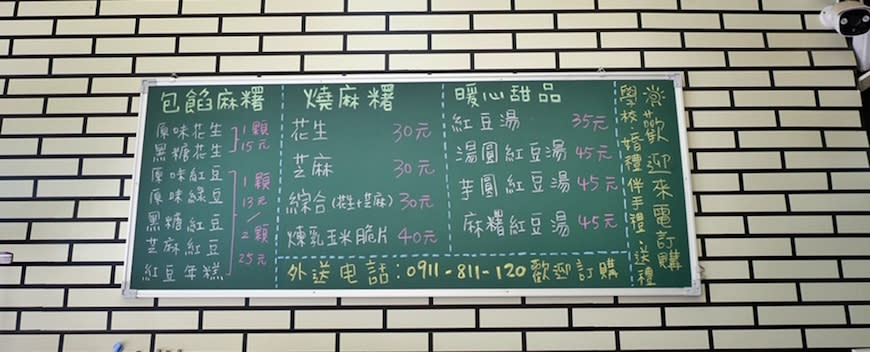 包餡麻糬
原味花生
黑糖花生
1顆
15元
原味紅豆
原味綠豆
黑糖紅豆
芝麻紅豆
紅豆年糕
1顆
13元
/
2顆
25元
燒麻糬
花生 30元
芝麻 30元
綜合(花生+芝麻) 30元
煉乳玉米脆片 40元
暖心甜品
紅豆湯 35元
湯圓紅豆湯 45元
芋圓紅豆湯 45元
麻糬紅豆湯 45元
歡迎來電訂購
學校、婚禮伴手禮、送禮
外送電話:0911-811-120歡迎訂購